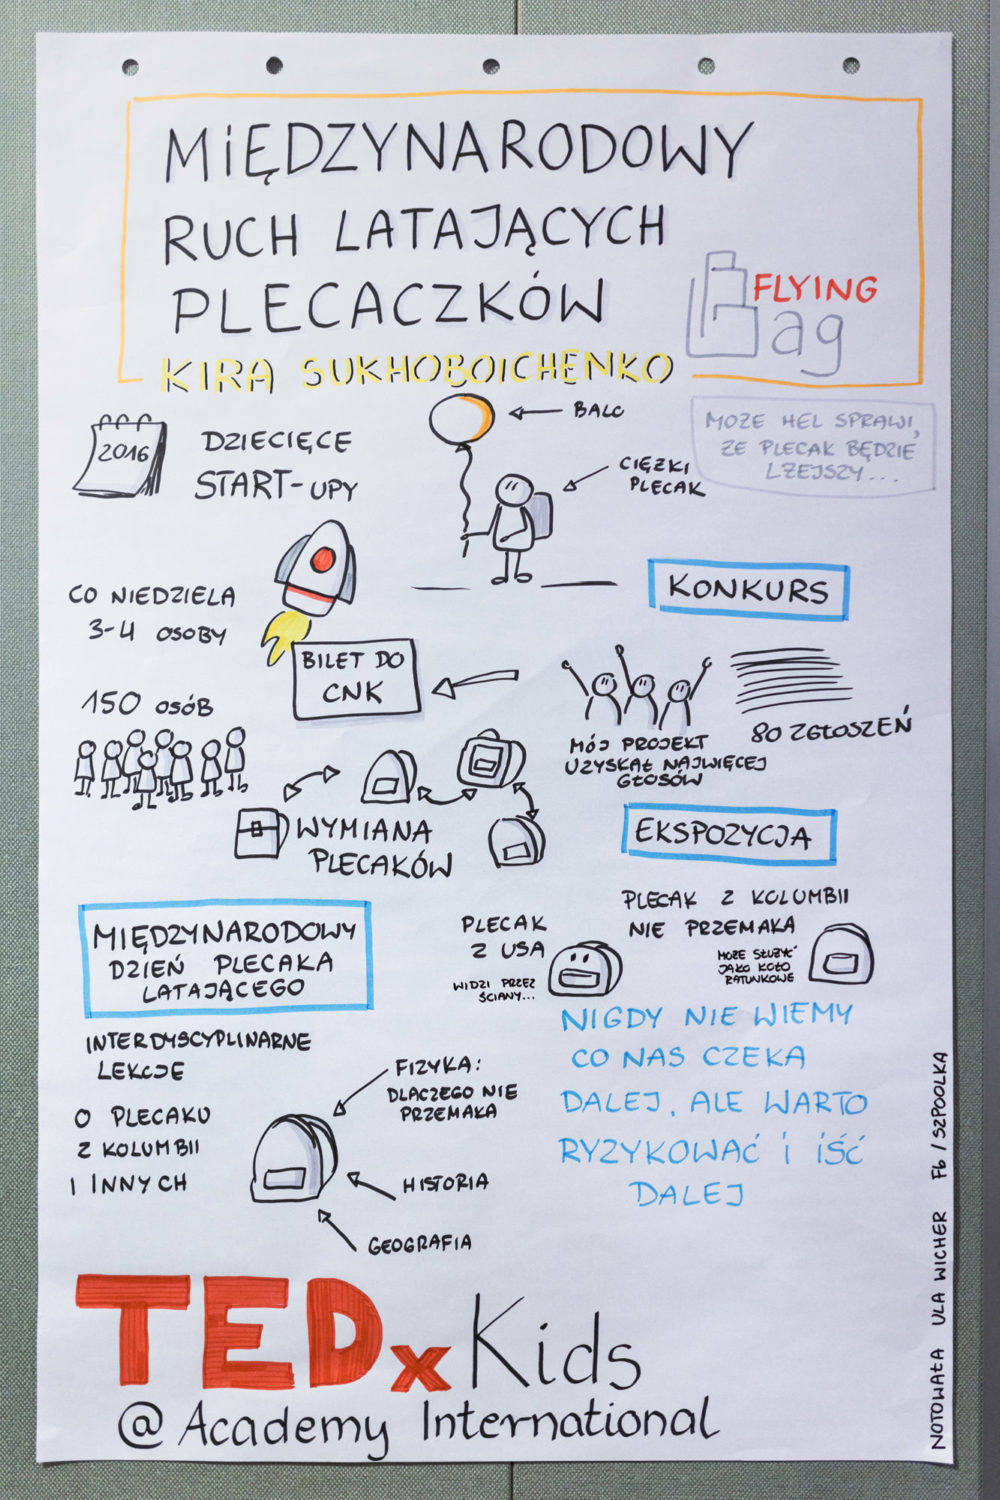 MIĘDZYNARODOWY
RUCH LATAJĄCYCH
PLECACZKÓW
FLYING
Bag
KIRA SUKHOBOICHENKO
2016
DZIECIĘCE
START-UPY
BALO
CIĘŻKI
PLECAK
MOŻE HEL SPRAWI,
ŻE PLECAK BĘDZIE
LŻEJSZY...
CO NIEDZIELA
3-4 OSOBY
KONKURS
BILET DO
CNK
150 OSÓB
MÓJ PROJEKT
UZYSKAŁ NAJWIĘCEJ
GŁOSÓW
80 ZGŁOSZEŃ
WYMIANA
PLECAKÓW
EKSPOZYCJA
MIĘDZYNARODOWY
DZIEŃ PLECAKA
LATAJĄCEGO
PLECAK
Z USA
WIDZI PRZEZ
ŚCIANY...
PLECAK Z KOLUMBII
NIE PRZEMAKA
MOŻE SŁUŻYĆ
JAKO KOŁO
RATUNKOWE
INTERDYSCYPLINARNE
LEKCJE
O PLECAKU
Z KOLUMBII
I INNYCH
FIZYKA:
DLACZEGO NIE
PRZEMAKA
HISTORIA
GEOGRAFIA
NIGDY NIE WIEMY
CO NAS CZEKA
DALEJ, ALE WARTO
RYZYKOWAĆ I IŚĆ
DALEJ
TEDx Kids
@ Academy International
NOTOWAŁA ULA WICHER Fb / SZPOOLKA